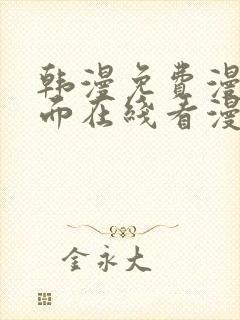 韩漫免费漫
而在线看漫
金永大